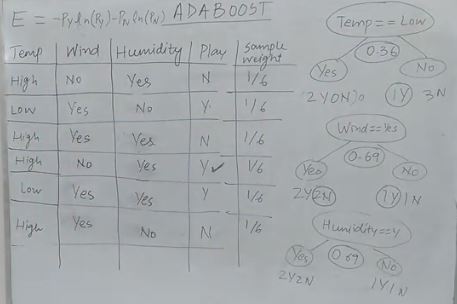 E = -Py ln(Py)-PN ln(PN) ADABOOST
Temp Wind Humidity Play sample weight
High No Yes N 1/6
Low Yes No Y 1/6
High Yes Yes N 1/6
High No Yes Y ✓ 1/6
Low Yes Yes Y 1/6
High Yes No N 1/6
Temp==Low
0.36
Yes No
2Y0N 1Y 3N
Wind==Yes
0.69
Yes No
2Y2N 1Y1N
Humidity==Y
Yes 0.69 No
2Y2N 1Y1N